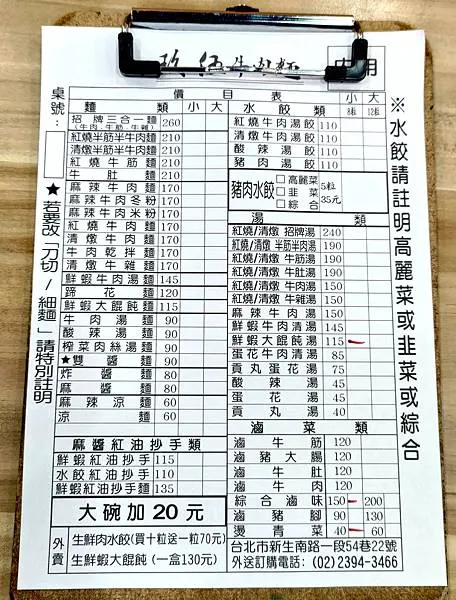 牛肉麵
內用
桌號:
價目表
麵類 小 大
招牌三合一麵 260
(牛肉、牛筋、牛雜)
紅燒半筋半牛肉麵 210
清燉半筋半牛肉麵 210
紅燒牛筋麵 210
牛肚麵 210
麻辣牛肉麵 170
麻辣牛肉冬粉 170
麻辣牛肉米粉 170
紅燒牛肉麵 170
清燉牛肉麵 170
牛肉乾拌麵 170
清燉牛雜麵 170
鮮蝦牛肉湯麵 145
蹄花麵 120
鮮蝦大餛飩麵 115
牛肉湯麵 90
酸辣湯麵 90
榨菜肉絲湯麵 90
★雙醬麵 90
炸醬麵 80
麻醬麵 80
麻辣涼麵 60
涼麵 60
麻醬紅油抄手類
鮮蝦紅油抄手 115
水餃紅油抄手 110
鮮蝦紅油抄手麵 135
大碗加20元
外賣
生鮮肉水餃(買十粒送一粒70元)
生鮮蝦大餛飩(一盒130元)
★若要改「刀切/細麵」請特別註明
水餃類 小 大
8粒 12粒
紅燒牛肉湯餃 110
清燉牛肉湯餃 110
酸辣湯餃 110
豬肉湯餃 110
豬肉水餃
□高麗菜
□韭菜
□綜合
5粒
35元
湯類
紅燒/清燉 招牌湯 240
紅燒/清燉 半筋半肉湯 190
紅燒/清燉 牛筋湯 190
紅燒/清燉 牛肚湯 190
紅燒/清燉 牛肉湯 150
紅燒/清燉 牛雜湯 150
麻辣牛肉湯 150
鮮蝦牛肉清湯 145
鮮蝦大餛飩湯 115
蛋花牛肉清湯 85
貢丸蛋花湯 75
酸辣湯 45
蛋花湯 45
貢丸湯 40
滷菜類
滷牛筋 120
滷豬大腸 120
滷牛肚 120
滷牛肉 120
綜合滷味 150 200
滷豬腳 90 130
燙青菜 40 60
台北市新生南路一段54巷22號
外送訂購電話:(02)2394-3466
※水餃請註明高麗菜或韭菜或綜合